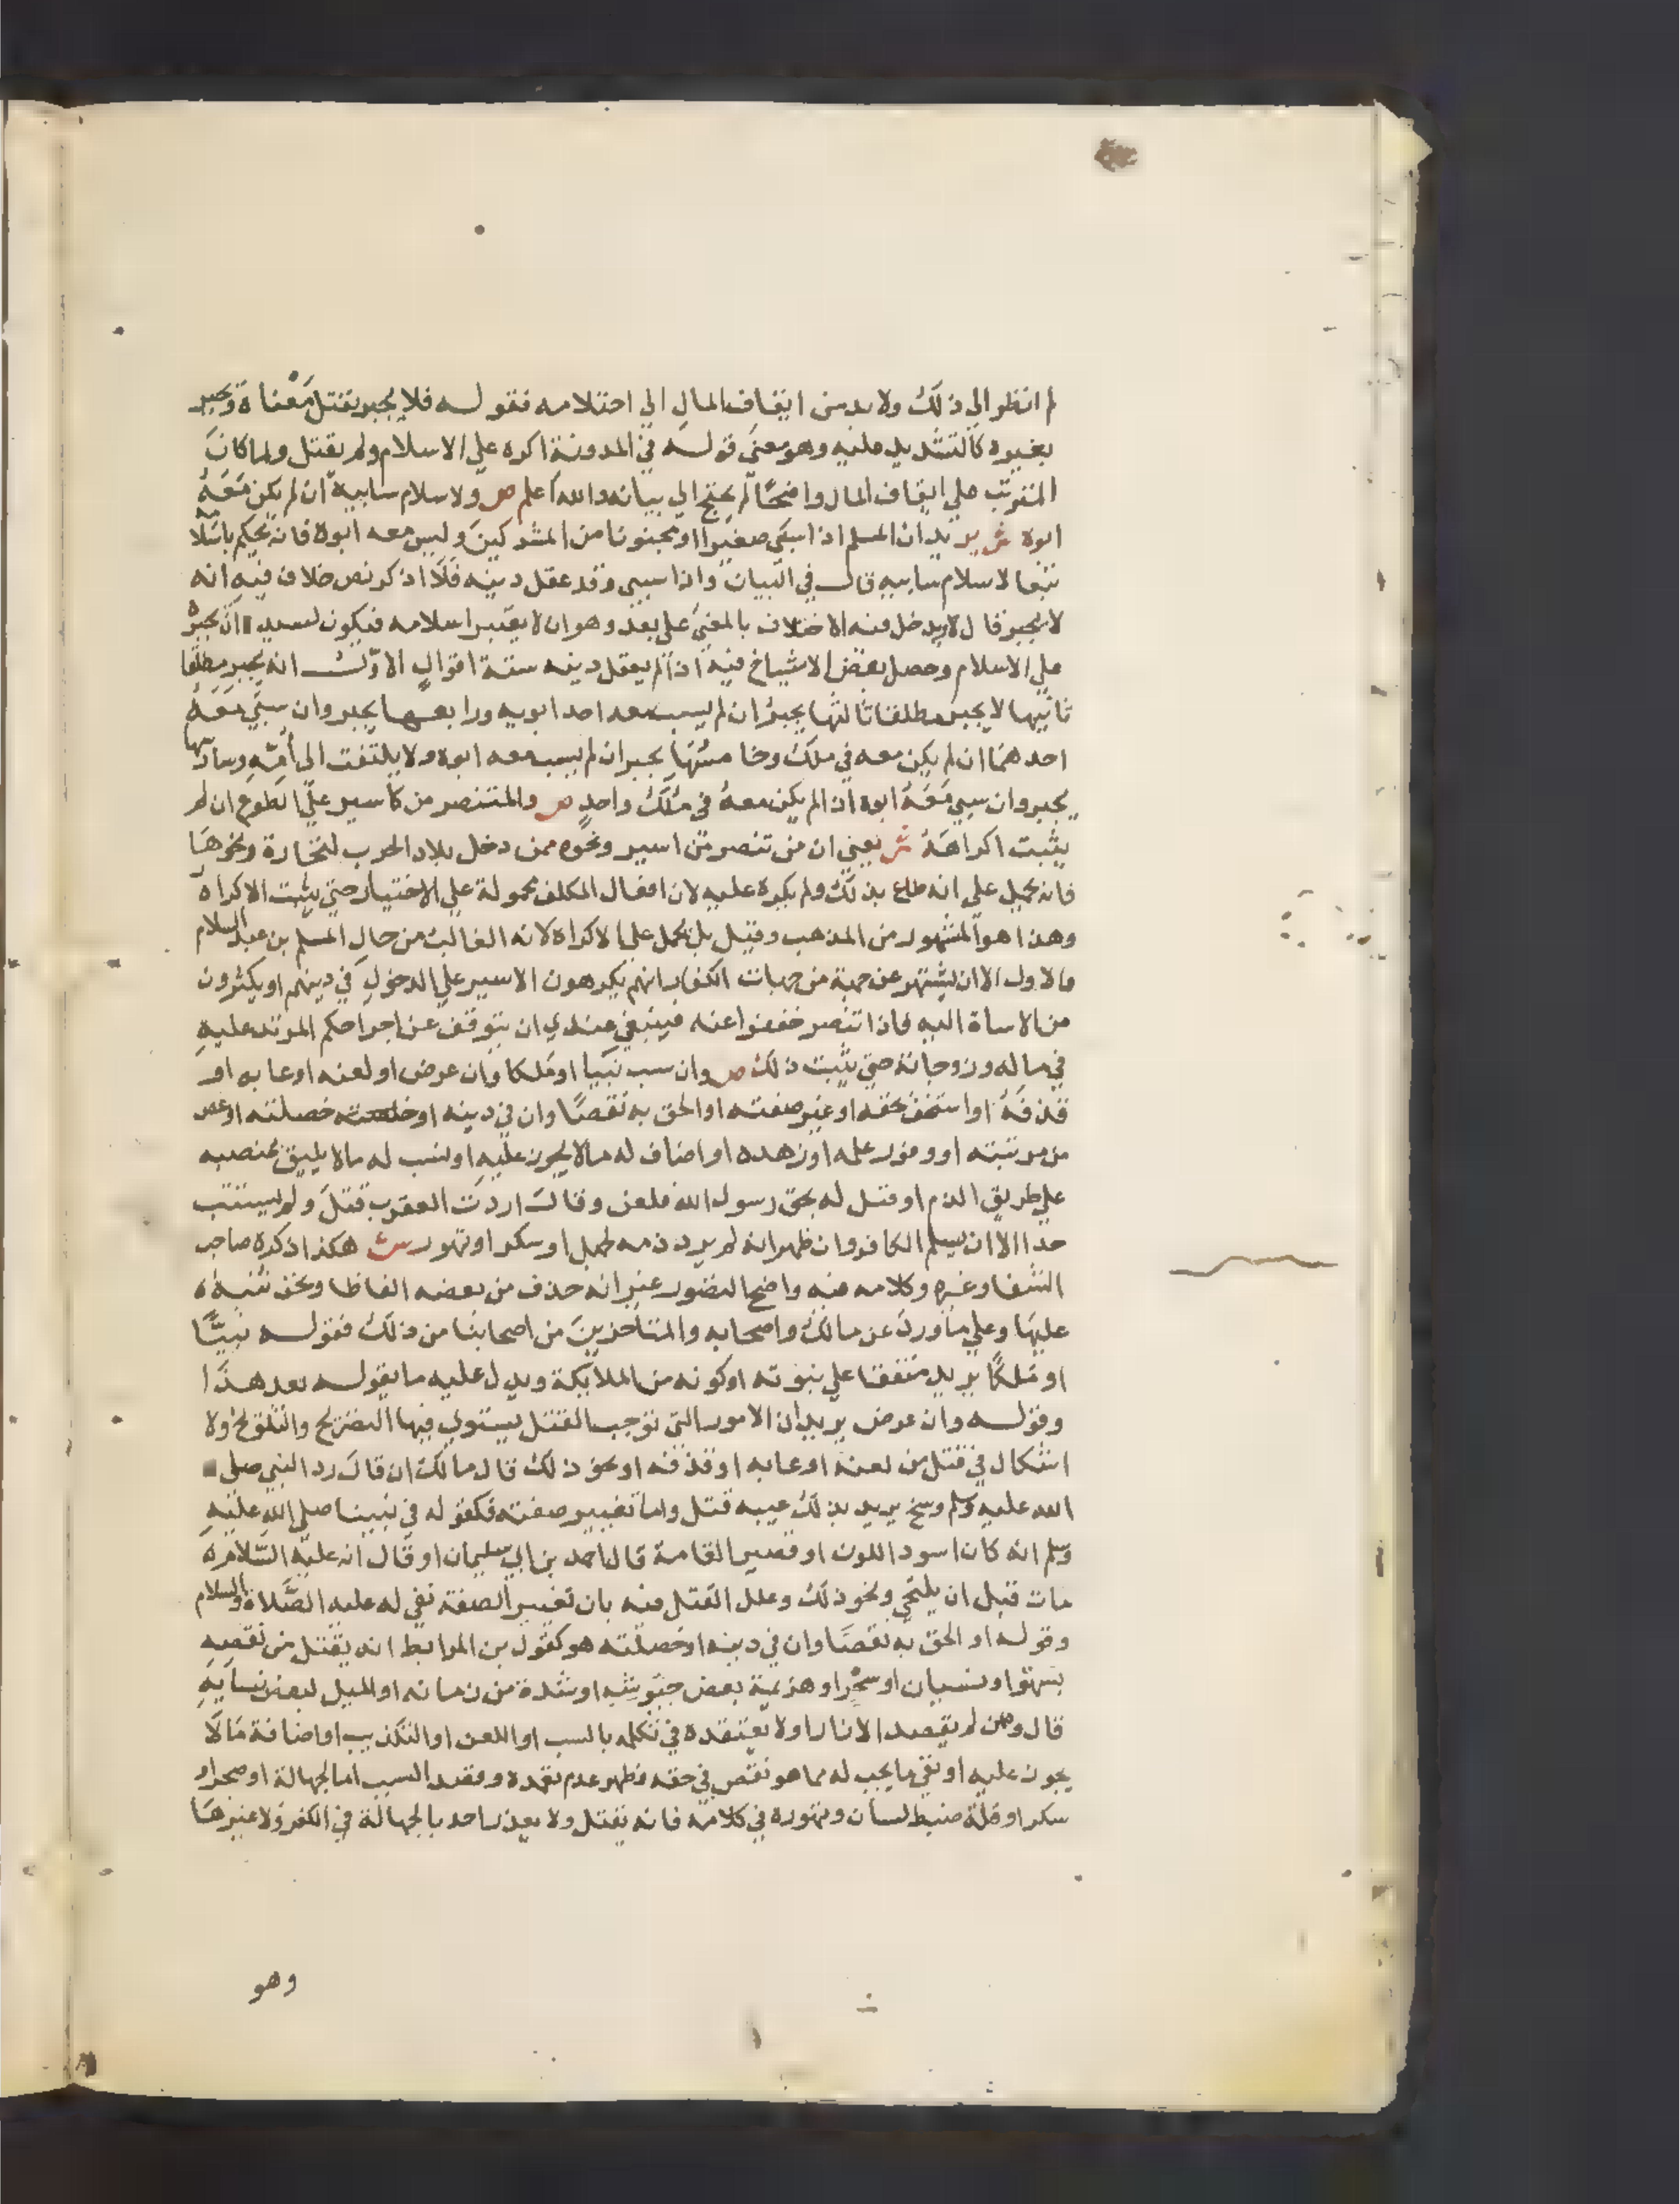 لم انظر الي ذلك ولا بد من ايقاف المال الي احتلامه فقوله فلا يجبر بقتل معناه ويجبر
بغيره كالتشديد عليه وهو معني قوله في المدونة اكره علي الاسلام ولم يقتل ولما كان
علي ايقاف المال واضحا لم يحتج الي بيانه والله اعلم ص ولاسلام سابيه ان لم يكن معه
ابوه ش يريد ان المسلم اذا سبي صغيرا او مجنونا من المشركين وليس معه ابوه فانه يحكم باسلامه
تبعا لاسلام سابيه قال في البيان واذا سبي وقد عقل دينه فلا اذكر نص خلاف فيه انه
لا يجبر قال لا يدخل فيه الاختلاف بالمعني علي بعد وهو ان لا يعتبر اسلامه فيكون لسيده ان يجبره
علي الاسلام وحصل بعض الاشياخ فيه اذا لم يعقل دينه ستة اقوال الاول انه يجبر مطلقا
ثانيها لا يجبر مطلقا ثالثها يجبر ان لم يسب معه احد ابويه ورابعها يجبر وان سبي معه
احدهما ان لم يكن معه في ملك وخامسها يجبر ان لم يسب معه ابوه ولا يلتفت الي امه وسادسها
يجبر وان سبي معه ابوه اذا لم يكن معه في ملك واحد ص والمتنصر من كاسير علي الطوع ان لم
يثبت اكراهه ش يعني ان من تنصر من اسير ونحوه ممن دخل بلاد الحرب لتجارة ونحوها
فانه يحمل علي انه طاع بذلك ولم يكره عليه لان افعال المكلف محمولة علي الاختيار حتي يثبت الاكراه
وهذا هو المشهور من المذهب وقيل بل يحمل علي الاكراه لانه الغالب من حال المسلم بن عبد السلام
فالاول الا ان يشتهر عن جهة من جهات الكفار انهم يكرهون الاسير علي الدخول في دينهم او يكثرون
من الاساة اليه فاذا تنصر خففوا عنه فينبغي عندي ان يتوقف عن اجرا حكم المرتد عليه
في ماله وزوجاته حتي يثبت ذلك ص وان سب نبيا او ملكا وان عرض او لعنه او عابه او
قذفه او استخف بحقه او غير صفته او الحق به نقصا وان في دينه او خصلته او غض
من مرتبته او وفور علمه او زهده او اضاف له مالا يجوز عليه او نسب له مالا يليق بمنصبه
علي طريق الذم او قيل له بحق رسول الله فلعن وقال اردت العقرب قتل ولم يستتب
حدا الا ان يسلم الكافر وان ظهر انه لم يرد ذمه لجهل او سكر او تهور ش هكذا ذكره صاحب
الشفا وغيره وكلامه فيه واضح التصور غير انه حذف من بعضه الفاظا ونحن ننبه
عليها وعلي ما ورد عن مالك واصحابه والمتاخرين من اصحابنا من ذلك فقوله نبيا
او ملكا يريد متفقا علي نبوته او كونه من الملايكة ويدل عليه ما يقوله بعد هذا
وقوله وان عرض يريد ان الامور التي توجب القتل يستوي فيها التصريح والتلويح ولا
اشكال في قتل من لعنه او عابه او قذفه او نحو ذلك قال مالك ان قال رد النبي صلي
الله عليه وسلم وسخ يريد بذلك عيبه قتل واما تغيير صفته فكقوله في نبينا صلي الله عليه
وسلم انه كان اسود اللون او قصير القامة قال احمد بن ابي سليمان او قال انه عليه السلام
مات قبل ان يلتحي ونحو ذلك وعلل القتل فيه بان تغيير الصفة نفي له عليه الصلاة والسلام
وقوله او الحق به نقصا وان في دينه او خصلته هو كقول بن المرابط انه يقتل من نقصه
بسهو او نسيان او سحر او هزيمة بعض جيوشه او شدة من زمانه او الميل لبعض نسايه
قال ومن لم يقصد الازرا ولا يعتقده في تكلمه بالسب او اللعن او التكذيب او اضافة مالا
يجوز عليه او نفي ما يجب له مما هو نقص في حقه فظهر عدم تعمده وقصد السب اما لجهالة او ضجر او
سكر او قلة ضبط لسان وتهوره في كلامه فانه يقتل ولا يعذر احد بالجهالة في الكفر ولا غيرها
وهو